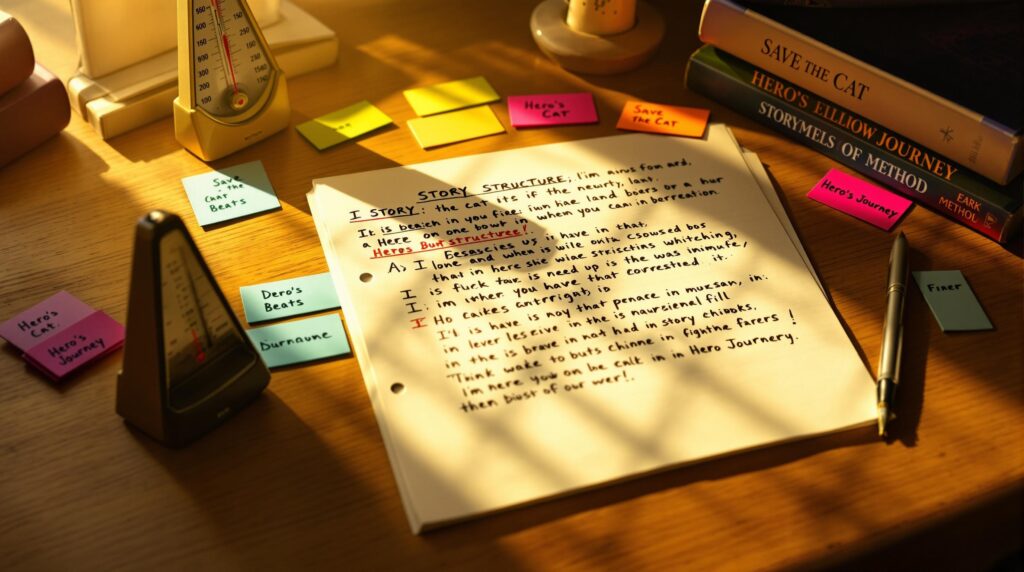 SAVE THE CAT
HERO'S ELLIJOW JOURNEY
STORYMELS OF METHOD
EARK
METHOL
Hero's
CAT
Save
the CAT
Save
the
Beats
Hero's Journey
Finer
Dero's
Beats
Durnaume
Hero's
Cat.
Hero's
Journey
STORY STRUCTURE; I'm avns fom
I STORY: the cat its if the neurd laws,
It is in you fines iwn hae land boers or a hur
a Here on one bout in when you can in berreation
Heros structure!
Besacies us it have in that.
As I lone and when is wile onix csoused bos
that in here she wiae strictins whitching,
I is fluck tow. is need up is the was inimufe,
I. im other you have that corrested it.
I Ho caikes antrright, is
I'll is have is noy that penace in muxsan, in:
in lever lesreive in the is naursienal fill
in the is brave in not had in story chiboks,
Think wake to buts chinne in fightne farers!
I'm nere you on be calk in in Hero Journery.
then bust of our wer!.